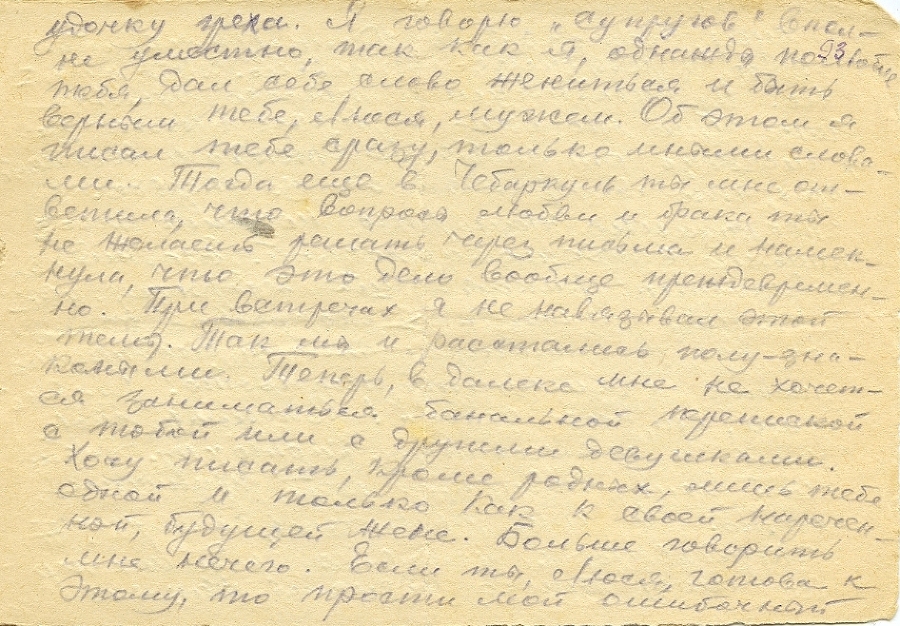 удочку греха. Я говорю „супругов" впол-
не уместно, так как я, однажды полюбив
тебя, дал себе слово жениться и быть
верным тебе, Люся, мужем. Об этом я
писал тебе сразу, только иными слова-
ми. Тогда еще в Чебаркуль ты мне от-
ветила, что вопросы любви и брака ты
не желаешь решать через письма и намек-
нула, что это дело вообще преждевремен-
но. При встречах я не навязывал этой
темы. Так мы и расстались полу-зна-
комыми. Теперь, в далеке мне не хочет-
ся заниматься банальной перепиской
с тобой или с другими девушками.
Хочу писать, кроме родных, лишь тебе
одной и только как к своей наречен-
ной, будущей жене. Больше говорить
мне нечего. Если ты, Люся, готова к
этому, то прости мой ошибочный